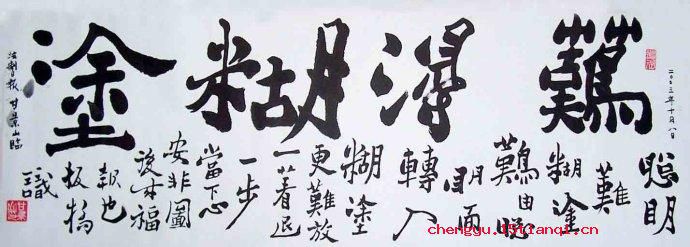 二〇〇三年十月八日
難得糊塗
聰明
難
糊塗
難由聰
明而
轉入
糊塗
更難放
一著退
一步
當下心
安非圖
後來福
報也
板橋
識
法制報 甘景山臨
chengyu.15tianqi.cn